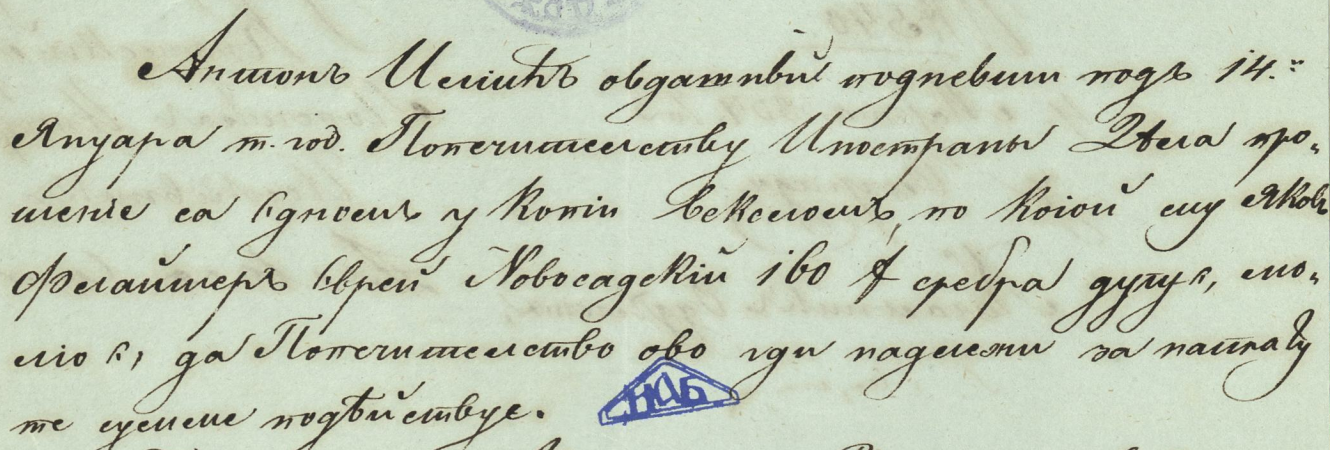 Антонъ Илліћъ овдашнѣй подневши подъ 14.
Януара т. год. Попечителству Инострany Дѣла про-
шенїе са єдномъ у копіи векселомъ, по коіой му Яковъ
Флайшеръ Єврей Новосадскій 160 f сребра дугує, мо-
ліо є, да Попечителство ово гди надлежи за наплату
те сумме подѣйствує.
НАБ